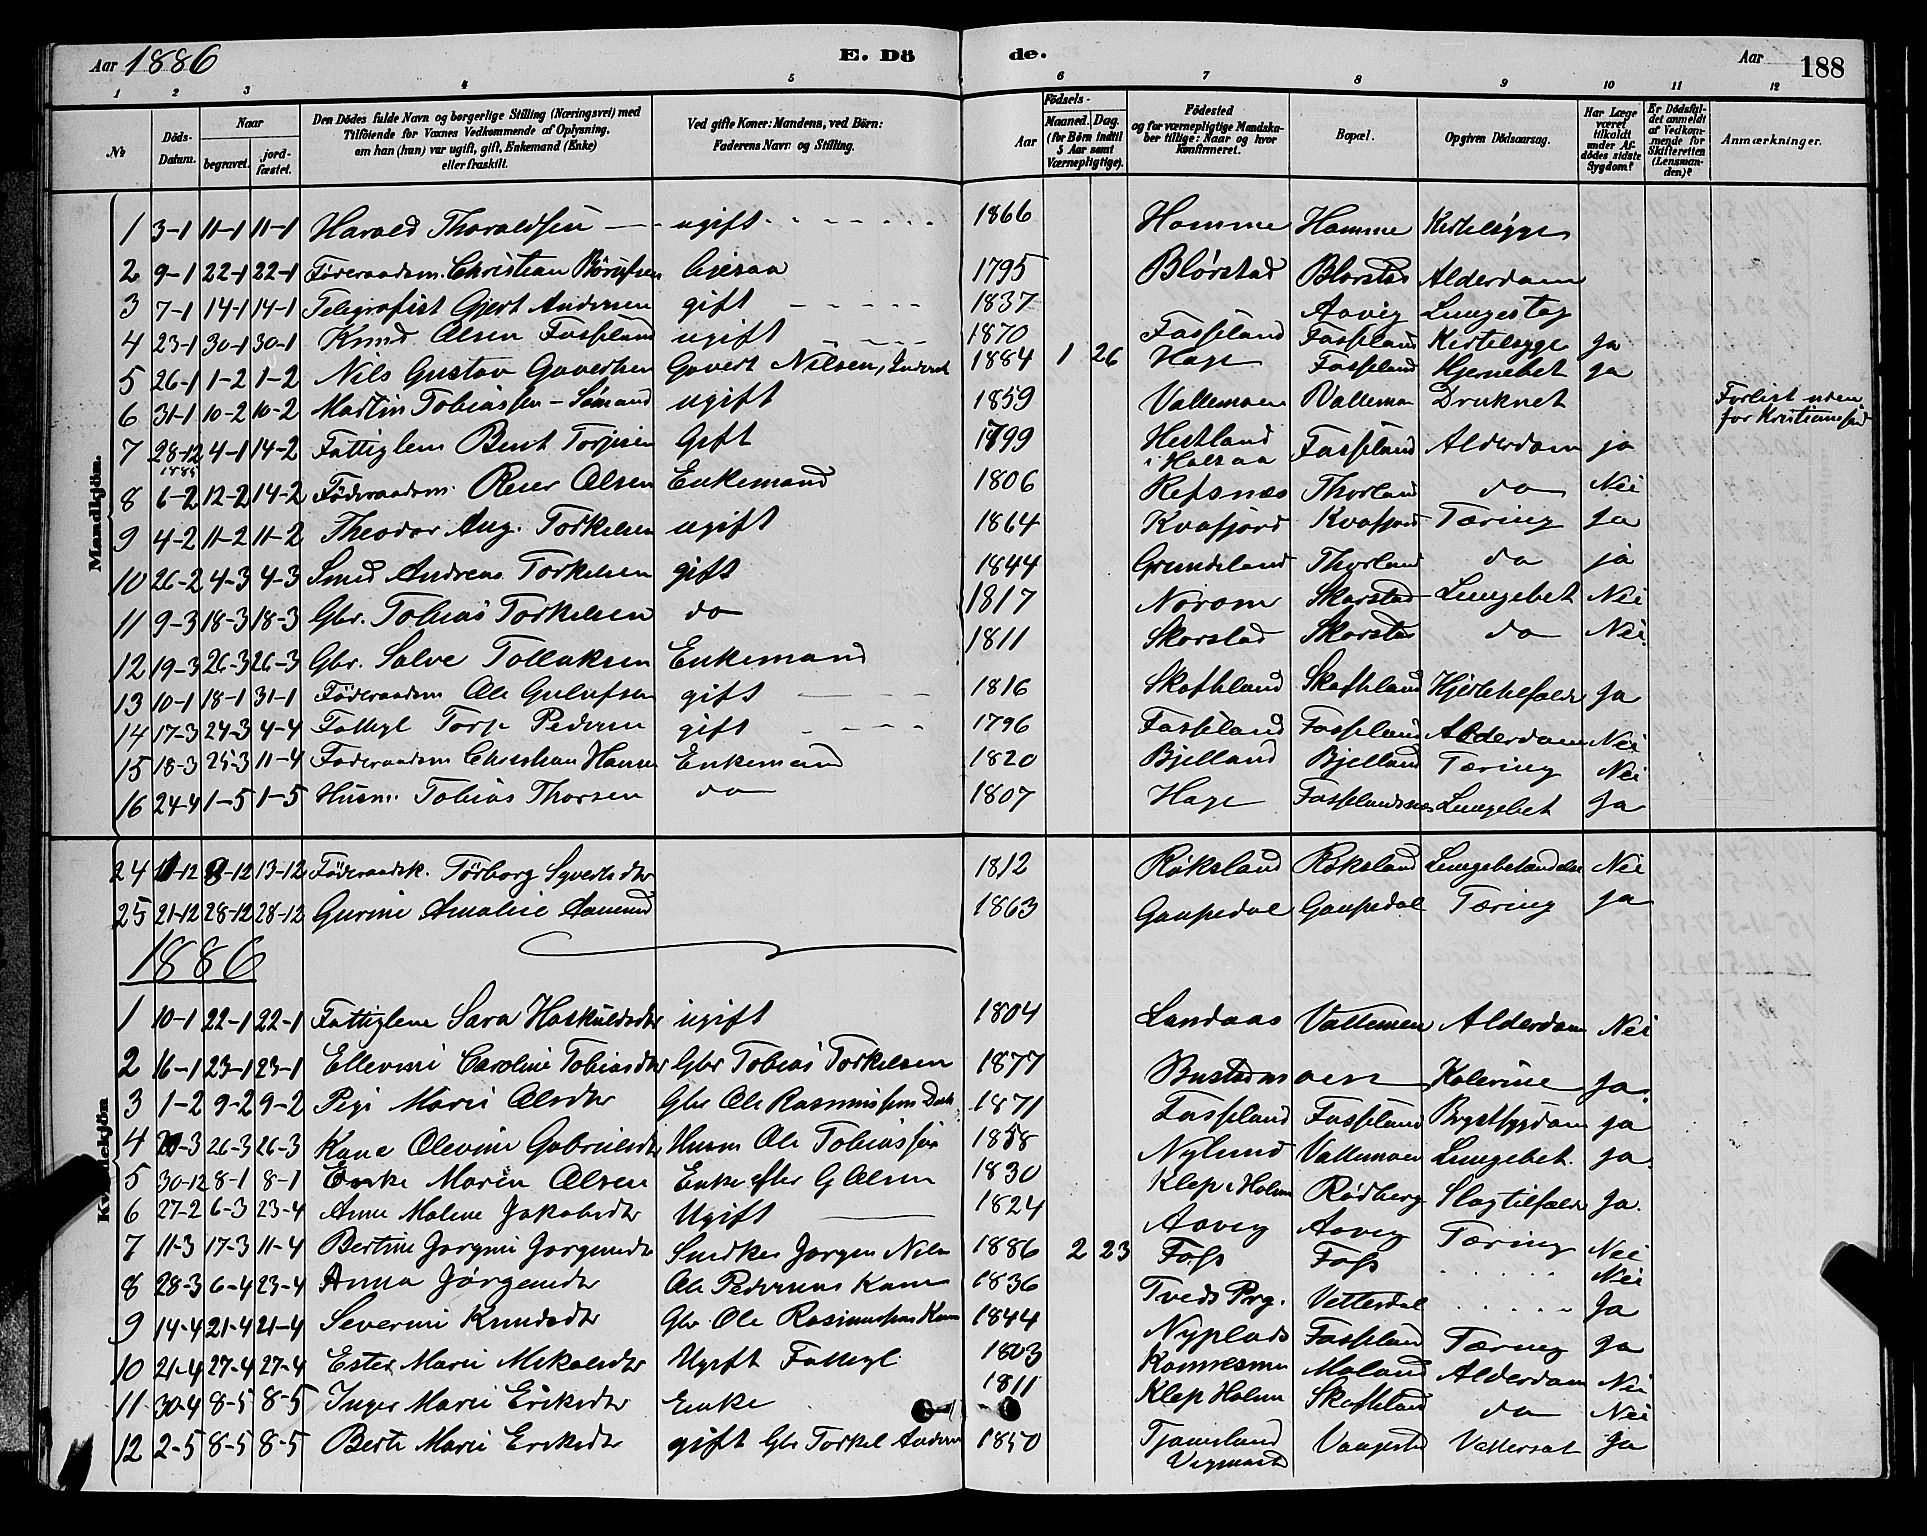 Aar 1886 E. Dö de. Aar 188
1 2 3 4 5 6 7 8 9 10 11 12
№ Döds-Datum. Naar begravet. jordfæstet. Den Dödes fulde Navn og borgerlige Stilling (Næringsvei) med Tilföiende for Voxnes Vedkommende af Oplysning, om han (hun) var ugift, gift, Enkemand (Enke) eller fraskilt. Ved gifte Koner: Mandens, ved Börn: Faderens Navn og Stilling. Aar Födsels- Maaned. Dag. (for Börn indtil 5 Aar samt Værnepligtige). Födested og for værnepligtige Mandskaber tillige: Naar og hvor konfirmeret. Bopæl. Opgiven Dödsaarsag. Har Læge været tilkaldt under Afdödes sidste Sygdom? Er Dödsfaldet anmeldt af Vedkommende for Skifteretten (Lensmanden)? Anmærkninger.
Mandkjön.
1 3-1 11-1 11-1 Harald Tharaldsen ugift 1866 Homme Homme Kirtelsyge
2 9-1 22-1 22-1 Föderaadsm. Christian 1795 Blörstad Blörstad Alderdom
3 7-1 14-1 14-1 Telegrafist Gjert Andersen gift 1837 Aavig
4 23-1 30-1 30-1 Knud Olsen Fossland ugift 1870 Fossland Fossland Kirtelsyge ja
5 26-1 1-2 1-2 Nils Gustav Govertsen Govert Nilsen, 1884 1 26 Hage Fossland Hjernebet ja
6 31-1 10-2 10-2 Martin Tobiassen - Sömand ugift 1859 Vallemoen Vallemoen Druknet Forlist uden for Kristianssand
7 28-12 1885 4-1 14-2 Fattiglem Bent Torjesen Gift 1799 Hestland i Halsaa Fossland Alderdom ja
8 6-2 12-2 14-2 Föderaadsm. Reier Olsen Enkemand 1806 Refsnes Thorland do Nei
9 4-2 11-2 11-2 Theodor Aug. Torkelsen ugift 1864 Kvafjord Kvafjord Tæring Ja
10 26-2 4-3 4-3 Smed Andreas Torkelsen gift 1844 Grundeland Thorland do ja
11 9-3 18-3 18-3 Gbr. Tobias Torkelsen do 1817 Skorstad Lungebet Nei
12 19-3 26-3 26-3 Gbr. Salve Tollaksen Enkemand 1811 Skorstad Skorstad do Nei
13 10-1 18-1 31-1 Föderaadsm Ole Gulufsen gift 1816 Skofteland Skofteland Ja
14 17-3 24-3 4-4 Fattigl Pedersen gift 1796 Fossland Fossland Alderdom Nei
15 18-3 25-3 11-4 Föderaadsm Christian Hansen Enkemand 1820 Bjelland Bjelland Tæring Nei
16 24-4 1-5 1-5 Husm. Tobias Thorsen do 1807 Hage Fosslandsnes Lungebet Ja
24 12 12 13-12 Föderaadsk. Törborg Syvertsdtr 1812 Röksland Röksland Lungebetændelse Nei
25 21-12 28-12 28-12 Gurine Amalie Aamund 1863 Gaupedal Gaupedal Tæring Ja
1886
Kvindekjön
1 10-1 22-1 22-1 Fattiglem Sara Haskuldsdtr ugift 1804 Landaas Vallemoen Alderdom Nei
2 16-1 23-1 23-1 Ellevine Caroline Tobiasdtr Gbr Tobias Torkelsen 1877 Bustadmoen Kolerine Ja.
3 1-2 9-2 9-2 Marie Olsdtr Gbr Ole Rasmussen 1871 Fossland Fossland Brystsygdom ja
4 3 26-3 26-3 Kone Olevine Gabrielsdtr Husm Ole Tobiassen 1858 Nylund Vallemoen Lungebet. ja.
5 30-12 8-1 8-1 Enke Maren Olsen Enke efter G Olsen 1830 Klep i Holum Rödberg Slagtilfælde Ja.
6 27-2 6-3 23-4 Anne Malene Jakobsdtr Ugift 1824 Aavig Aavig Tæring Nei
7 11-3 17-3 11-4 Bertine Jorgine Jorgensdtr Snedker Jorgen Nilsen 1886 2 23 Foss Foss Nei
8 28-3 6-4 23-4 Anna Jörgensdtr Ole Pedersens Kone 1836 Tveds Prg. Vetterdal Ja
9 14-4 21-4 21-4 Severine Knudsdtr Gbr Ole Rasmussens Kone 1844 Nyplads Fossland Tæring Ja
10 21-4 27-4 27-4 Ester Marie Mikalsdtr Ugift Fattigl 1803 Moland Alderdom Nei
11 30-4 8-5 8-5 Inger Marie Eriksdtr Enke 1811 Klep Holum Skofteland do Nei
12 2-5 8-5 8-5 Berte Marie Eriksdtr gift Gbr Torkel Andersen 1850 Tjomsland Vaagestad Vattersot Ja